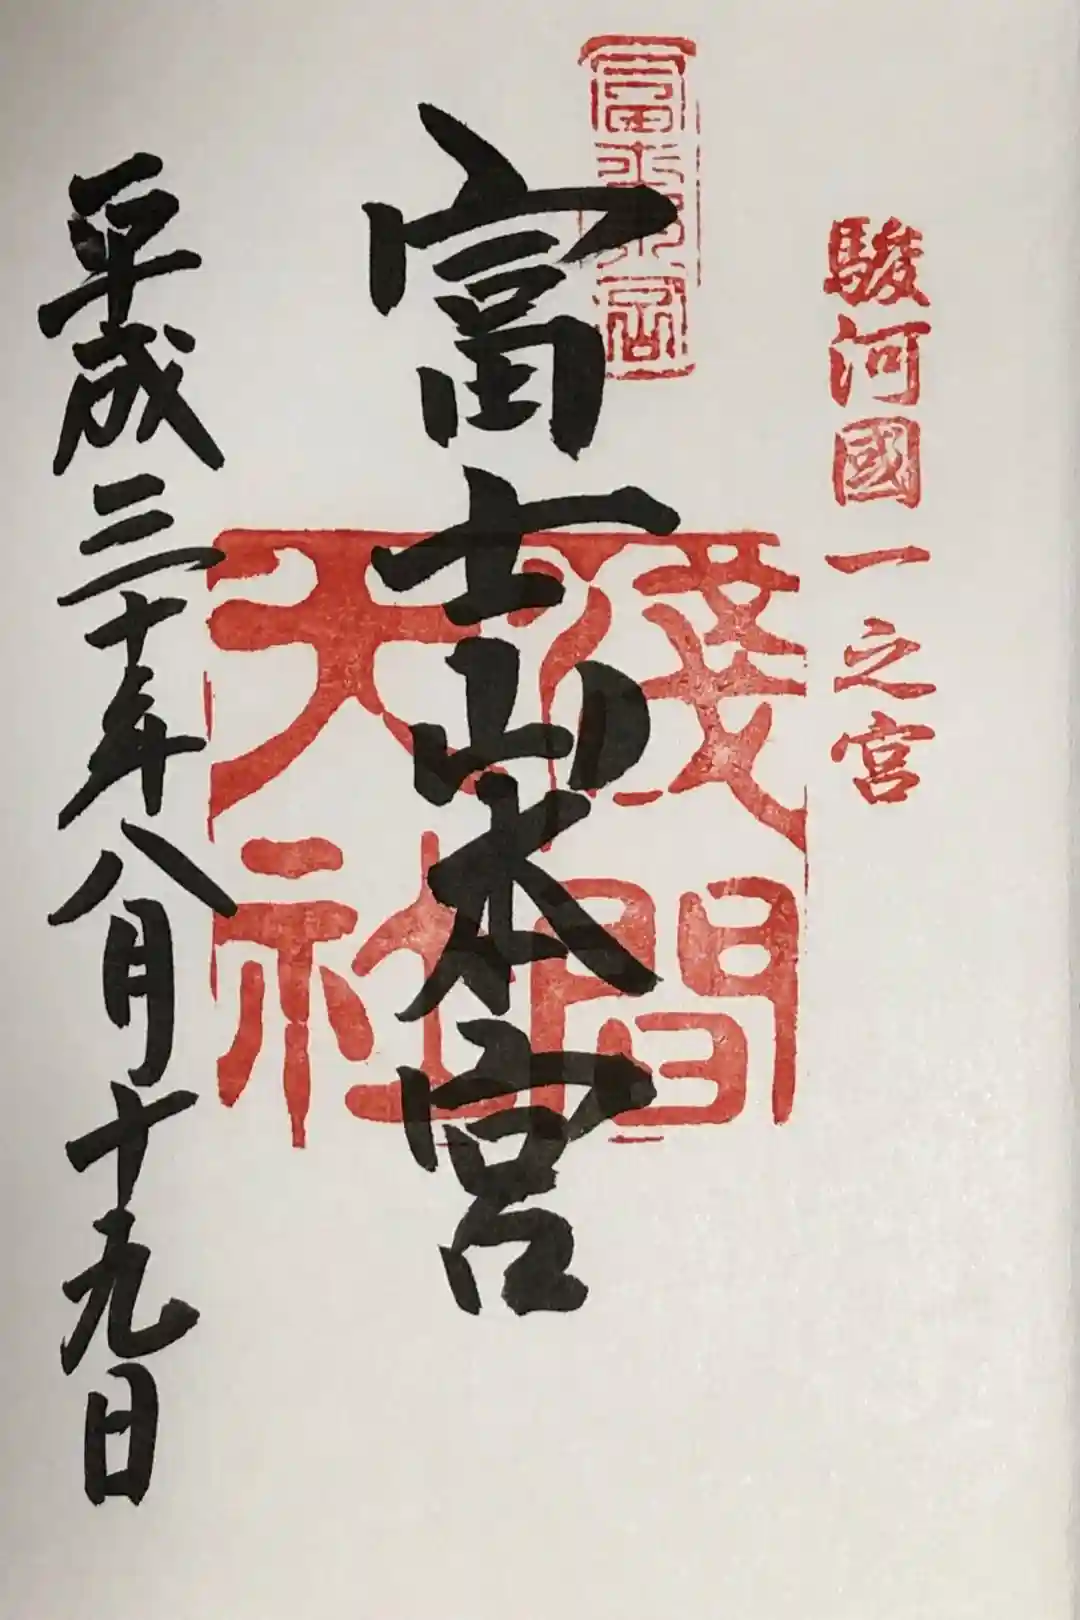 駿河國一之宮
富士本宮
富士山本宮
淺間
大社
平成三十年八月十九日